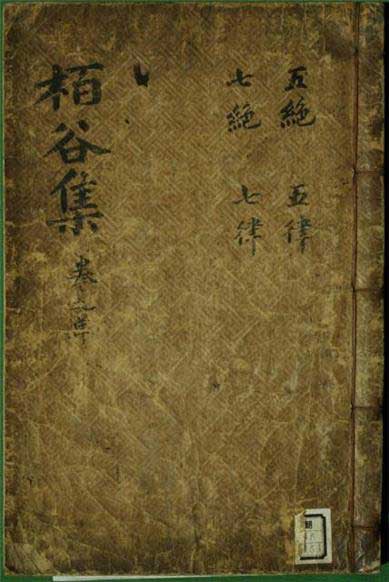 五絶 五律
七絶 七律
栢谷集 卷之